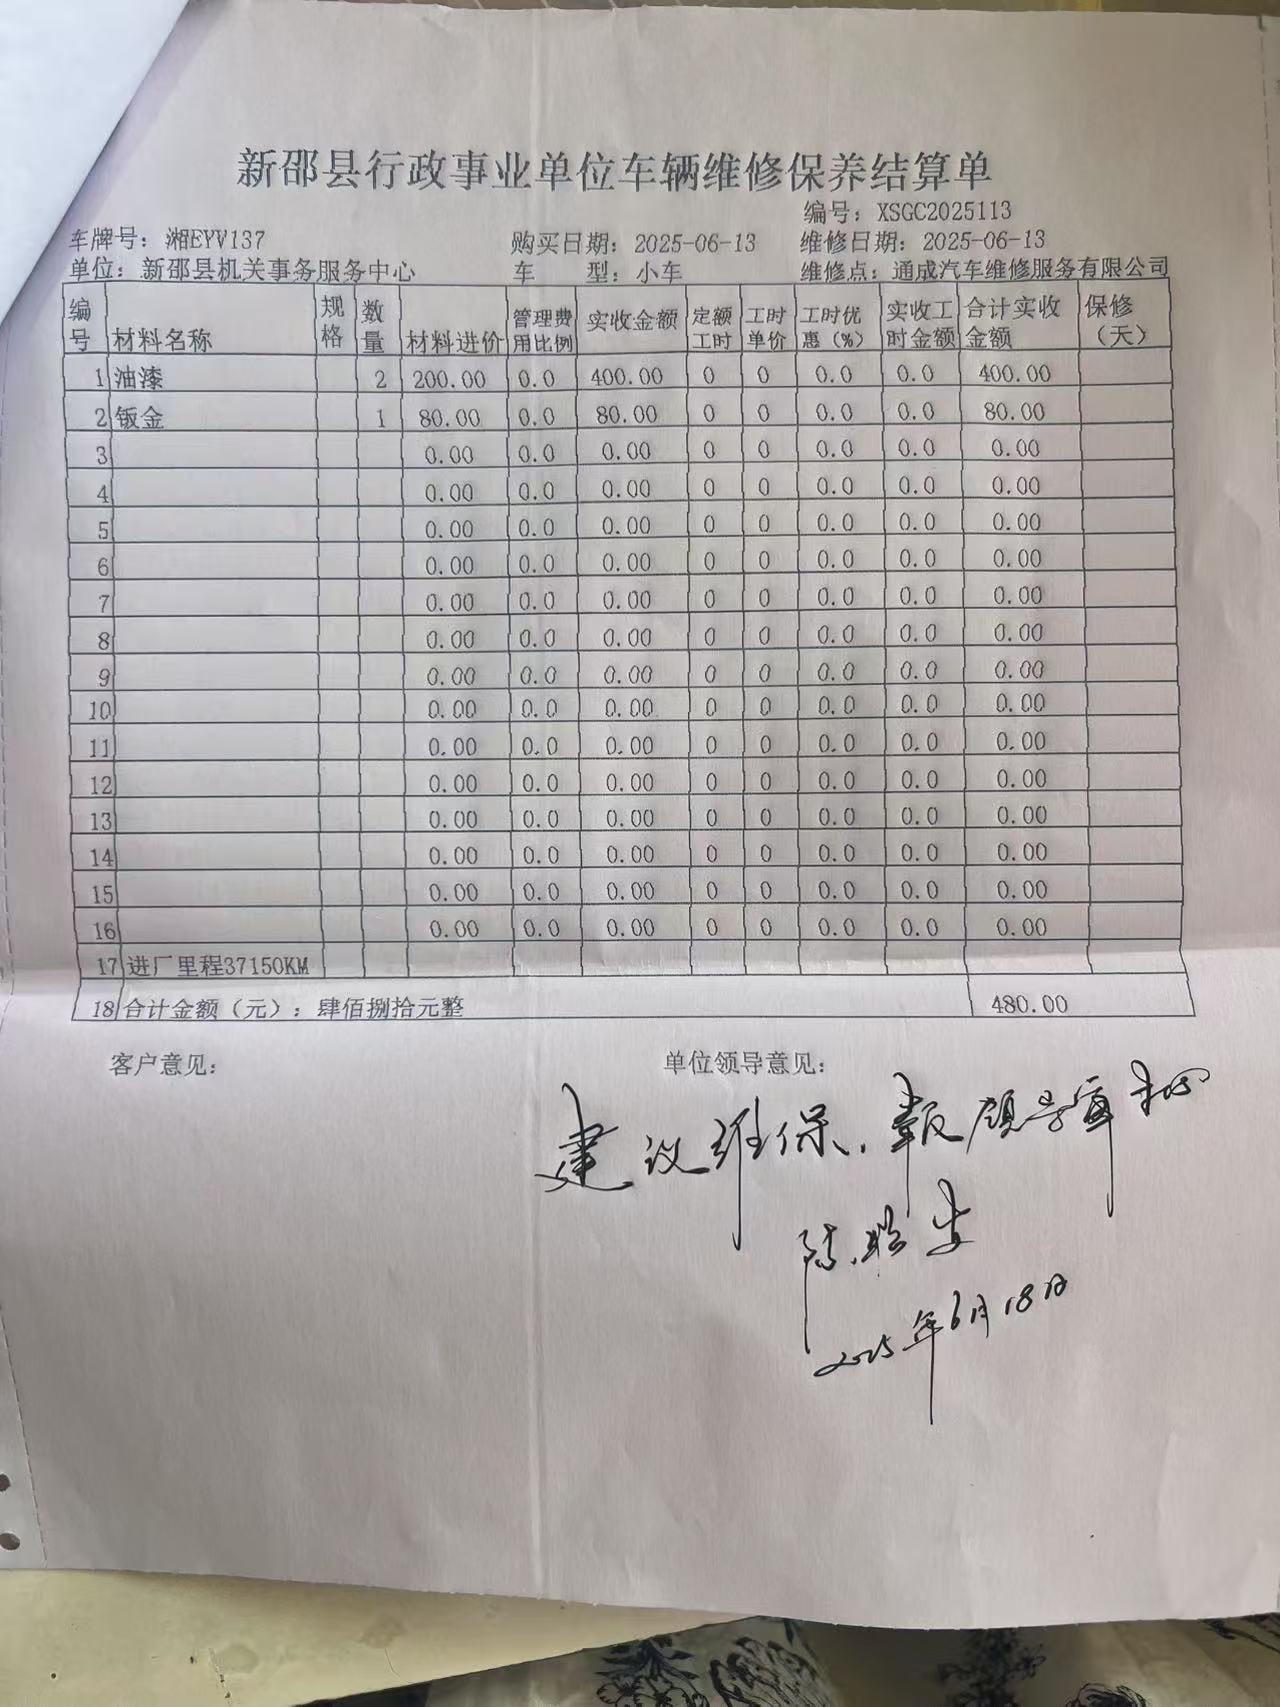 新邵县行政事业单位车辆维修保养结算单
编号：XSGC2025113
车牌号：湘EYV137 购买日期：2025-06-13 维修日期：2025-06-13
单位：新邵县机关事务服务中心 车 型：小车 维修点：通成汽车维修服务有限公司
编号 材料名称 规格 数量 材料进价 管理费用比例 实收金额 定额工时 工时单价 工时优惠（%） 实收工时金额 合计实收金额 保修（天）
1 油漆 2 200.00 0.0 400.00 0 0 0.0 0.0 400.00
2 钣金 1 80.00 0.0 80.00 0 0 0.0 0.0 80.00
3 0.00 0.0 0.00 0 0 0.0 0.0 0.00
4 0.00 0.0 0.00 0 0 0.0 0.0 0.00
5 0.00 0.0 0.00 0 0 0.0 0.0 0.00
6 0.00 0.0 0.00 0 0 0.0 0.0 0.00
7 0.00 0.0 0.00 0 0 0.0 0.0 0.00
8 0.00 0.0 0.00 0 0 0.0 0.0 0.00
9 0.00 0.0 0.00 0 0 0.0 0.0 0.00
10 0.00 0.0 0.00 0 0 0.0 0.0 0.00
11 0.00 0.0 0.00 0 0 0.0 0.0 0.00
12 0.00 0.0 0.00 0 0 0.0 0.0 0.00
13 0.00 0.0 0.00 0 0 0.0 0.0 0.00
14 0.00 0.0 0.00 0 0 0.0 0.0 0.00
15 0.00 0.0 0.00 0 0 0.0 0.0 0.00
16 0.00 0.0 0.00 0 0 0.0 0.0 0.00
17 进厂里程37150KM
18 合计金额（元）：肆佰捌拾元整 480.00
客户意见： 单位领导意见：
建议维保，报领导审批
陈
2025年6月18日